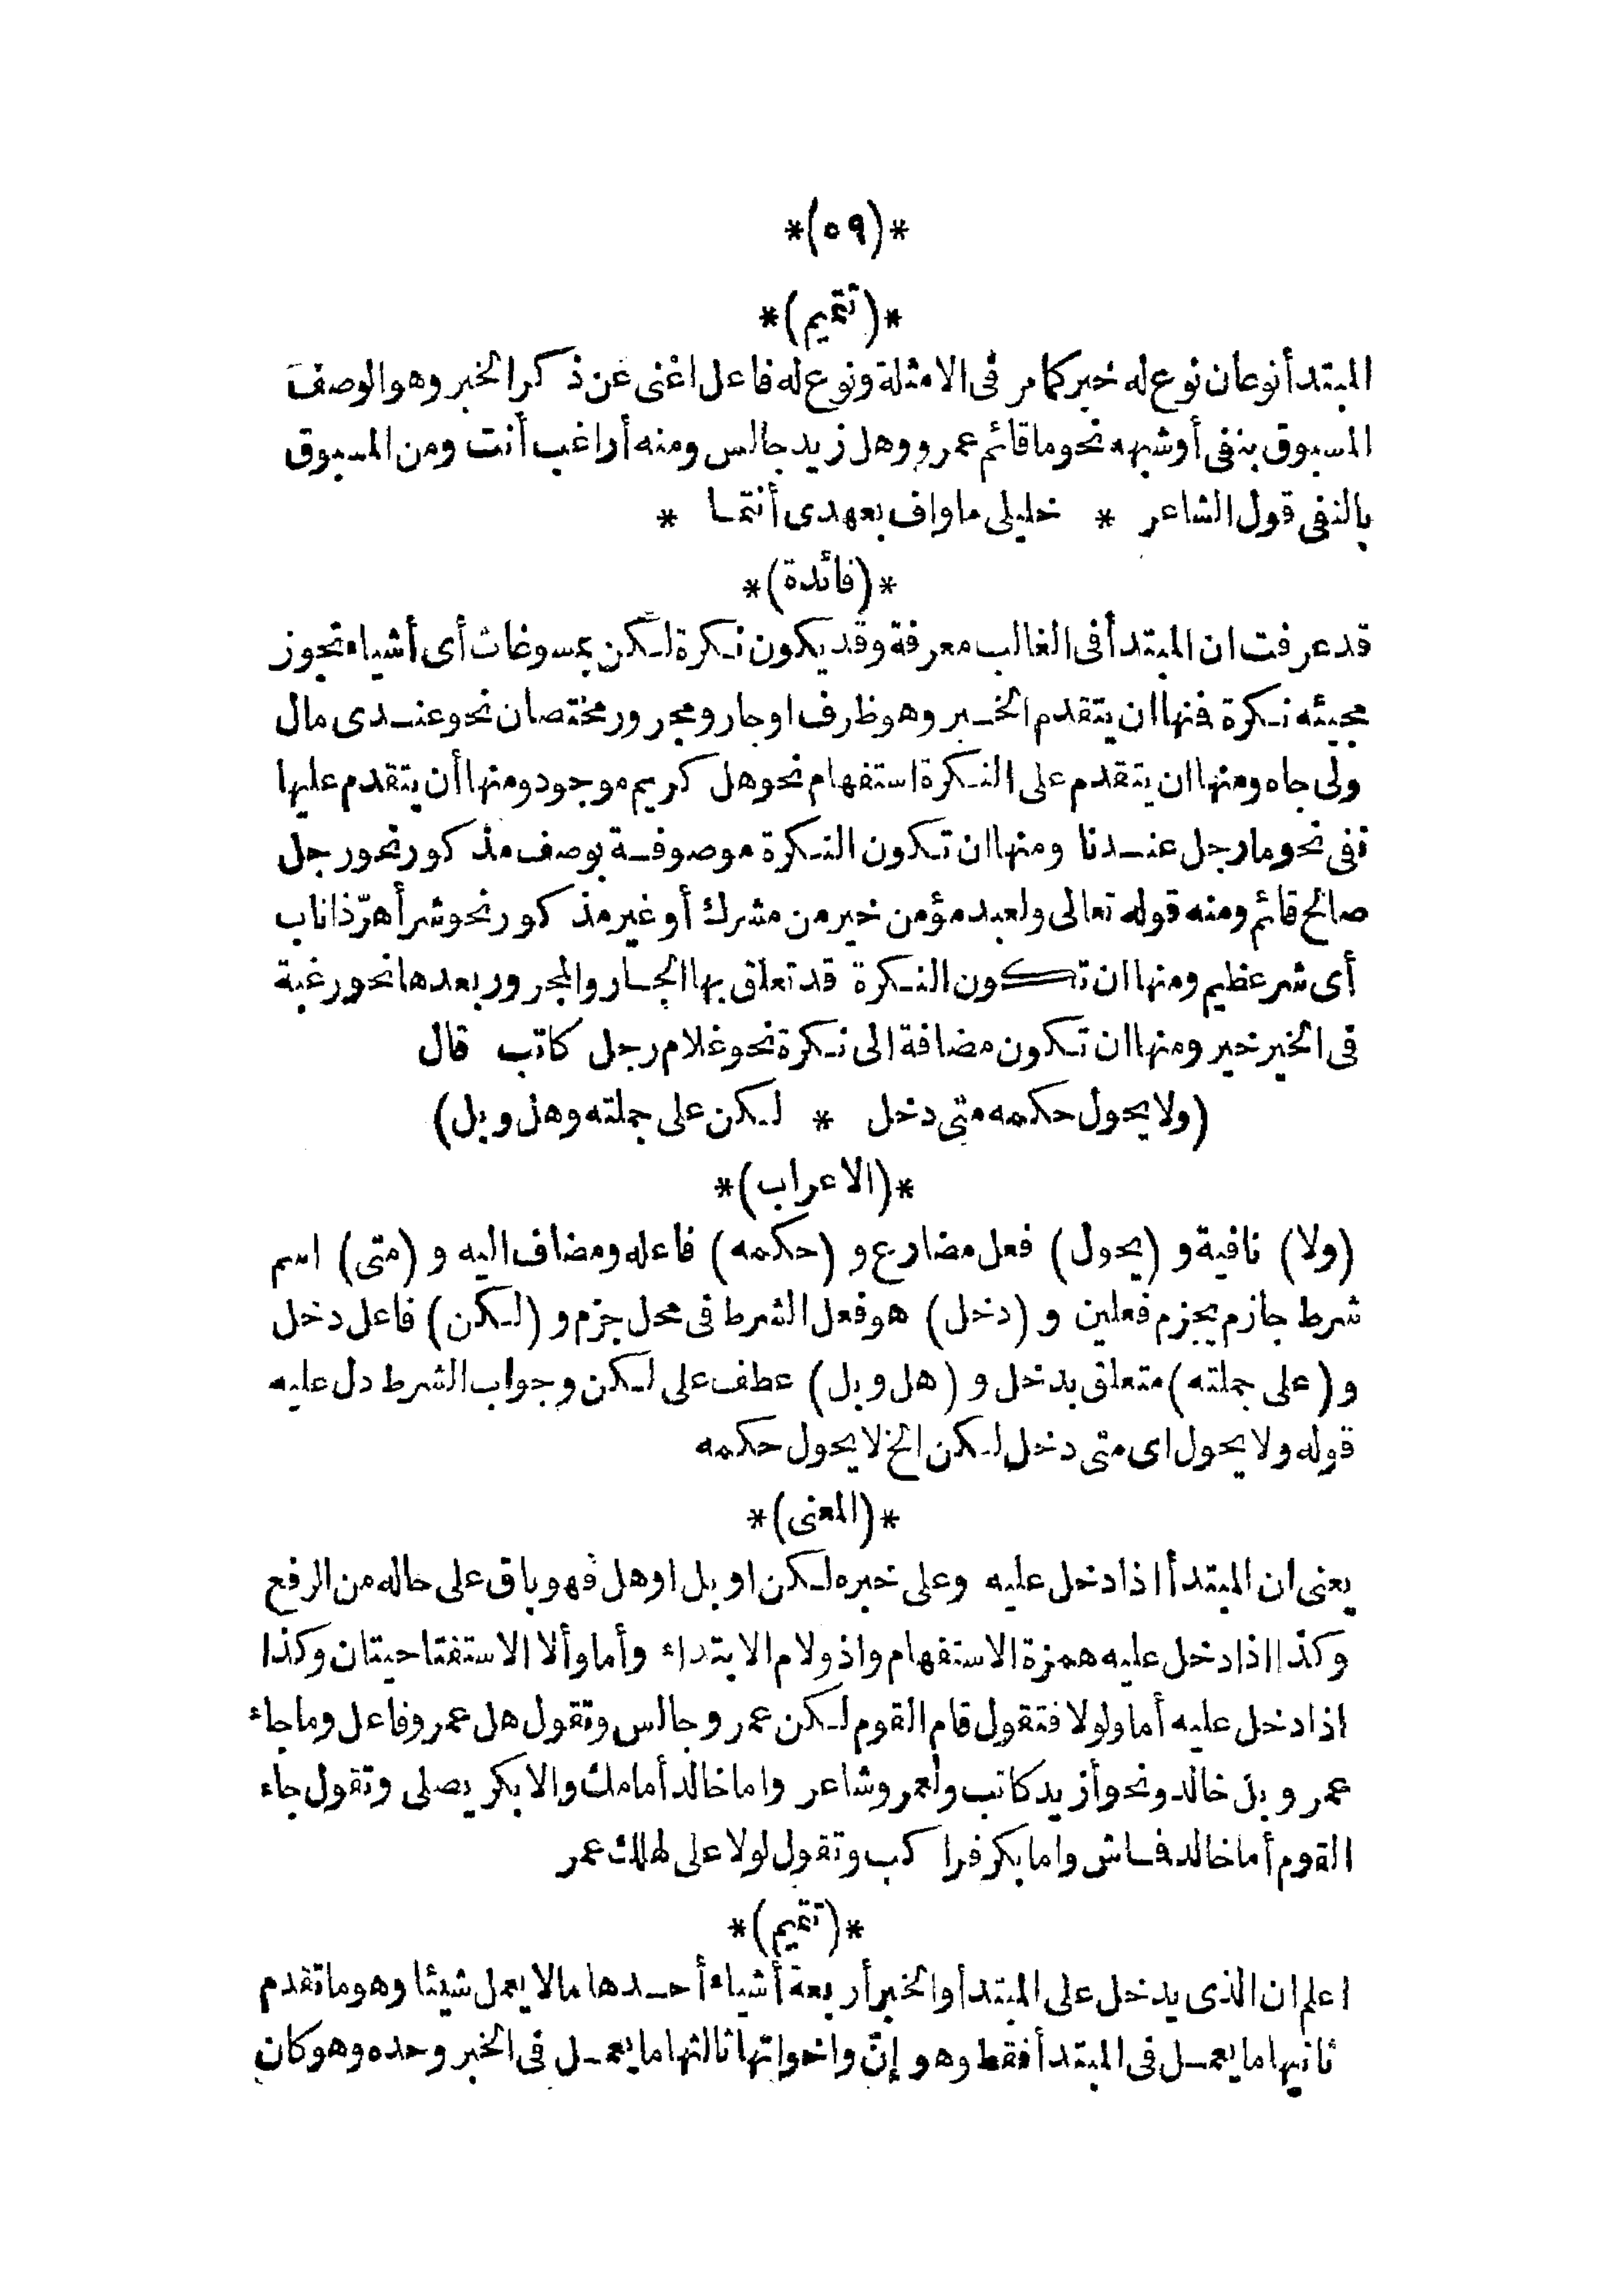 *(٥٩)*
*(تتميم)*
المبتدأ نوعان نوع له خبر كما مر فى الامثلة ونوع له فاعل اغنى عن ذكر الخبر وهو الوصف
المسبوق بنفى أو شبهه نحو ما قائم عمرو وهل زيد جالس ومنه أراغب أنت ومن المسبوق
بالنفى قول الشاعر * خليلى ما واف بعهدى أنتما *
*(فائدة)*
قد عرفت ان المبتدأ فى الغالب معرفة وقد يكون نكرة لكن بمسوغات أى أشياء تجوز
مجيئه نكرة فمنها ان يتقدم الخبر وهو ظرف او جار ومجرور مختصان نحو عندى مال
ولى جاه ومنها ان يتقدم على النكرة استفهام نحو هل كريم موجود ومنها أن يتقدم عليها
نفى نحو ما رجل عندنا ومنها ان تكون النكرة موصوفة بوصف مذكور نحو رجل
صالح قائم ومنه قوله تعالى ولعبد مؤمن خير من مشرك أو غير مذكور نحو شر أهرّ ذا ناب
أى شر عظيم ومنها ان تكون النكرة قد تعلق بها الجار والمجرور بعدها نحو رغبة
فى الخير خير ومنها ان تكون مضافة الى نكرة نحو غلام رجل كاتب قال
(ولا يحول حكمه متى دخل * لكن على جملته وهل وبل)
*(الاعراب)*
(ولا) نافية و (يحول) فعل مضارع و (حكمه) فاعله ومضاف اليه و (متى) اسم
شرط جازم يجزم فعلين و (دخل) هو فعل الشرط فى محل جزم و (لكن) فاعل دخل
و (على جملته) متعلق بدخل و (هل وبل) عطف على لكن وجواب الشرط دل عليه
قوله ولا يحول اى متى دخل لكن الخ لا يحول حكمه
*(المعنى)*
يعنى ان المبتدأ اذا دخل عليه وعلى خبره لكن او بل او هل فهو باق على حاله من الرفع
وكذا اذا دخل عليه همزة الاستفهام واذ ولام الابتداء وأما وألا الاستفتاحيتان وكذا
اذا دخل عليه أما ولولا فتقول قام القوم لكن عمرو جالس وتقول هل عمرو فاعل وما جاء
عمرو بل خالد ونحو أزيد كاتب ولعمرو شاعر واما خالد أمامك والا بكر يصلى وتقول جاء
القوم أما خالد فماش واما بكر فراكب وتقول لولا على لهلك عمر
*(تتميم)*
اعلم ان الذى يدخل على المبتدأ والخبر أربعة أشياء أحدها ما لا يعمل شيئا وهو ما تقدم
ثانيها ما يعمل فى المبتدأ فقط وهو إنّ واخواتها ثالثها ما يعمل فى الخبر وحده وهو كان